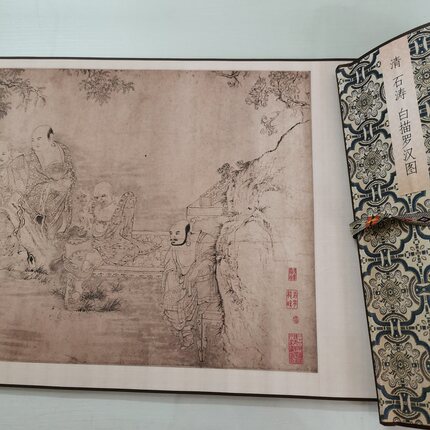 清 石涛 白描罗汉图